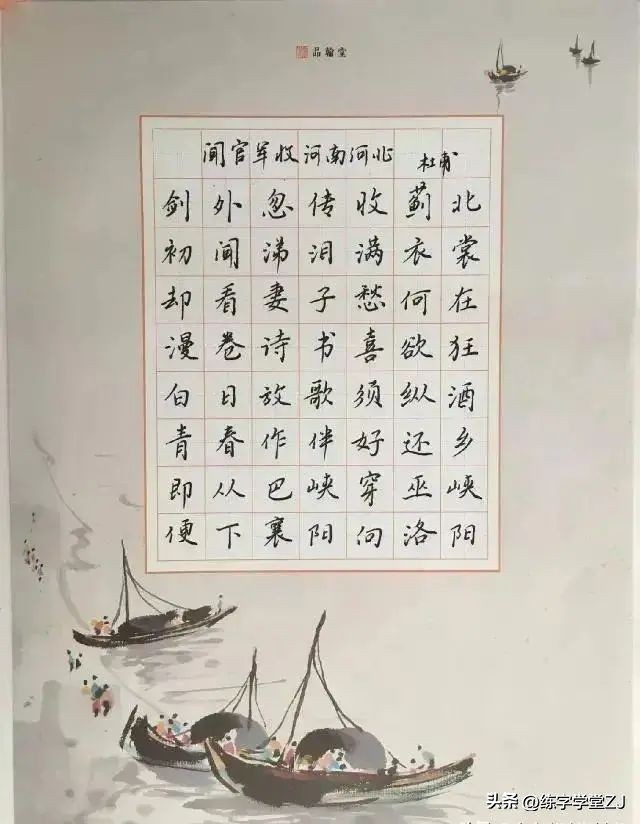 品翰堂
闻官军收河南河北 杜甫
剑外忽传收蓟北
初闻涕泪满衣裳
却看妻子愁何在
漫卷诗书喜欲狂
白日放歌须纵酒
青春作伴好还乡
即从巴峡穿巫峡
便下襄阳向洛阳
头条 @练字学堂ZJ